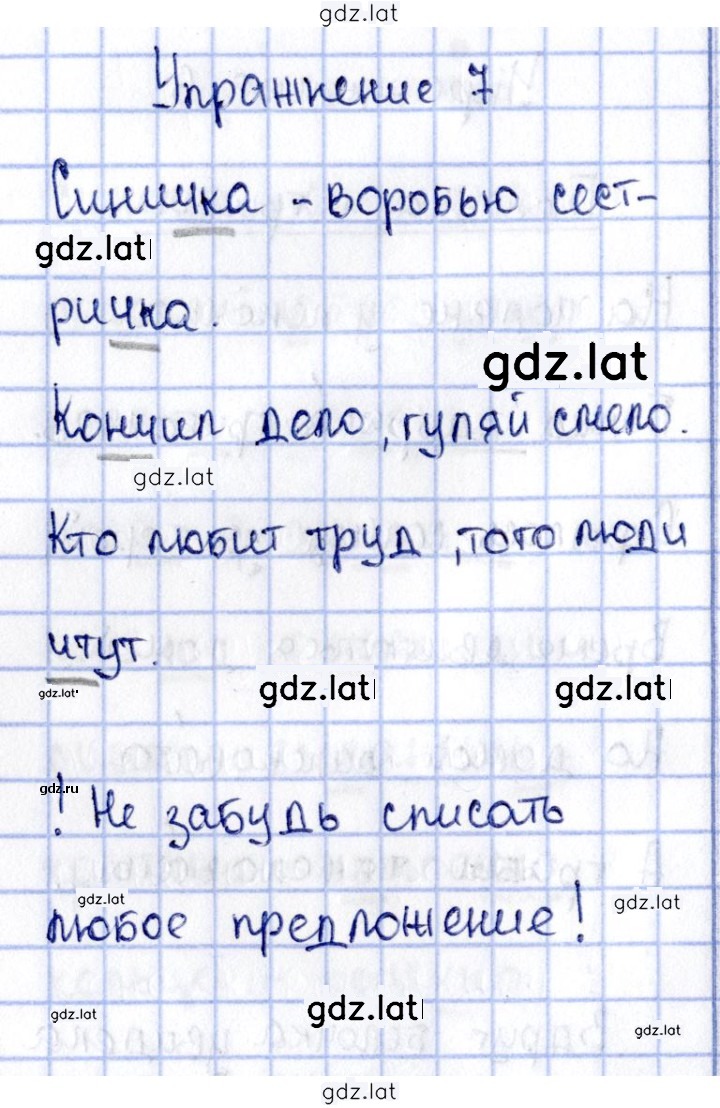 gdz.lat
Упражнение 7
Синичка - воробью сест-
gdz.lat
ричка.
gdz.lat
Кончил дело, гуляй смело.
gdz.lat
Кто любит труд, того люди
чтут.
gdz.lat
gdz.lat
gdz.lat
gdz.ru
! Не забудь списать
gdz.lat
gdz.lat
любое предложение!
gdz.lat
gdz.lat
gdz.lat
gdz.lat